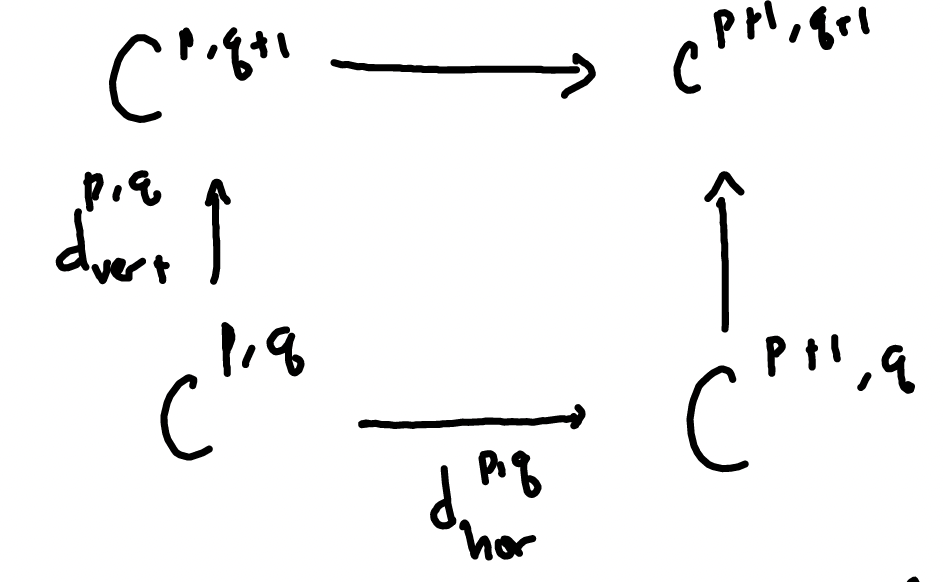 C^{p,q+1} → C^{p+1,q+1}
d_{vert}^{p,q} ↑ ↑
C^{p,q} → C^{p+1,q}
d_{hor}^{p,q}